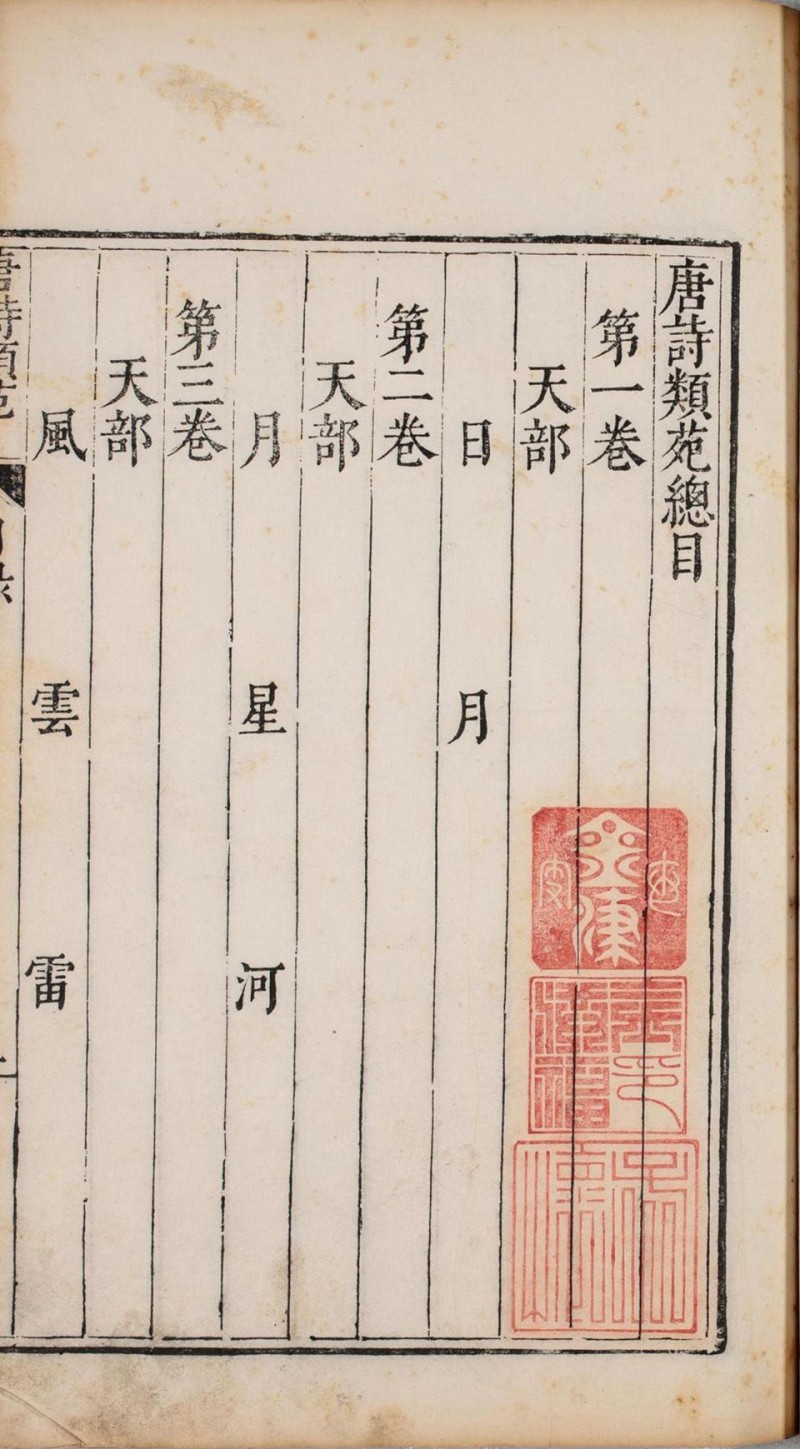 唐詩類苑總目
第一卷
天部
日 月
第二卷
天部
月 星 河
第三卷
天部
風 雲 雷
唐詩類苑
目錄